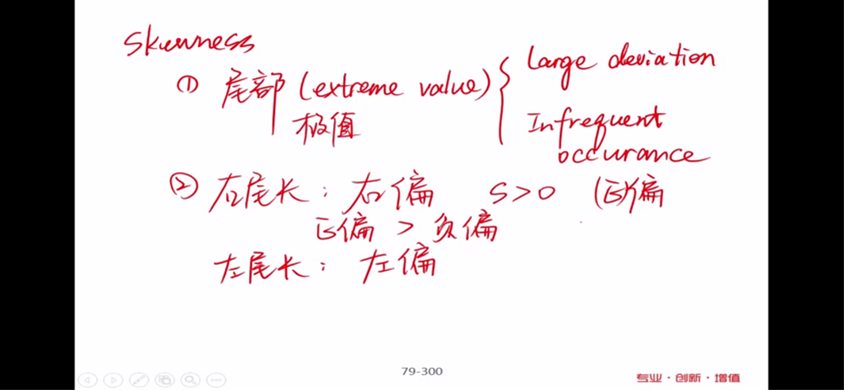 Skewness
① 尾部 (extreme value) { Large deviation
极值
Infrequent
occurance
② 右尾长: 右偏 S>0 (正)偏
正偏 > 负偏
左尾长: 左偏
79-300
专业·创新·增值